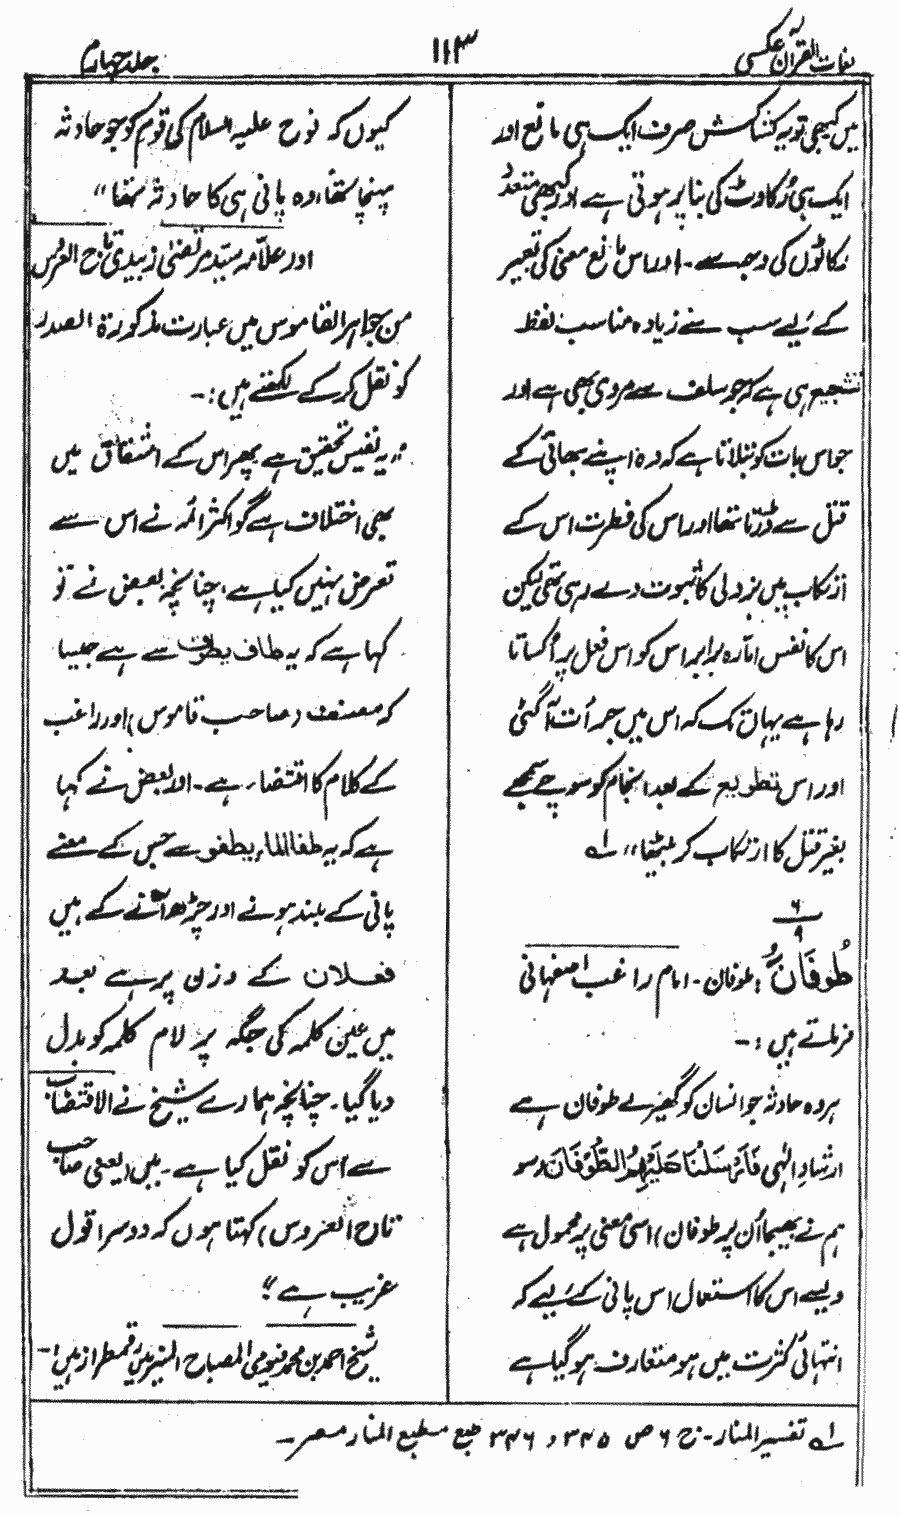 لغات القرآن عکسی
۱۱۳
جلد چہارم
میں کبھی تو یہ کشاکش صرف ایک ہی مانع اور
ایک ہی رُکاوٹ کی بنا پر ہوتی ہے اور کبھی متعدد
رکاٹوں کی وجہ سے۔ اور اس مانع معنی کی تعبیر
کے لئے سب سے زیادہ مناسب لفظ
تشجیع ہی ہے کہ جو سلف سے مروی بھی ہے اور
جو اس بات کو بتلاتا ہے کہ وہ اپنے بھائی کے
قتل سے ڈرتا تھا اور اس کی فطرت اس کے
ارتکاب میں بزدلی کا ثبوت دے رہی تھی لیکن
اس کا نفس امّارہ برابر اس کو اس فعل پر اُکساتا
رہا ہے یہاں تک کہ اس میں جرأت آگئی
اور اس تطویع کے بعد انجام کو سوچے سمجھے
بغیر قتل کا ارتکاب کر بیٹھا" لہ
۶
۹
طُوفَانٌ: طوفان۔ امام راغب اصفہانی
فرماتے ہیں :۔
ہر وہ حادثہ جو انسان کو گھیرلے طوفان ہے
ارشادِ الٰہی فَاَرْسَلْنَا عَلَيْهِمُ الطُّوْفَانَ (سو
ہم نے بھیجا اُن پر طوفان) اسی معنی پر محمول ہے
ویسے اس کا استعمال اس پانی کے لئے کہ
انتہائی کثرت میں ہو متعارف ہو گیا ہے
کیوں کہ نوح علیہ السلام کی قوم کو جو حادثہ
پہنچا تھا، وہ پانی ہی کا حادثہ تھا"
اور علّامہ سیّد مرتضیٰ زبیدی تاج العروس
من جواہر القاموس میں عبارت مذکورۃ الصدر
کو نقل کر کے لکھتے ہیں :۔
"یہ نفیس تحقیق ہے پھر اس کے اشتقاق میں
بھی اختلاف ہے گو اکثر ائمہ نے اس سے
تعرض نہیں کیا ہے، چنانچہ بعض نے تو
کہا ہے کہ یہ طاف یطوف سے ہے جیسا
کہ مصنف (صاحب قاموس) اور راغب
کے کلام کا اقتضاء ہے۔ اور بعض نے کہا
ہے کہ یہ طفا الماء یطفو سے جس کے معنے
پانی کے بلند ہونے اور چڑھ آنے کے ہیں
فعلان کے وزن پر ہے بعد
میں عین کلمہ کی جگہ پر لام کلمہ کو بدل
دیا گیا۔ چنانچہ ہمارے شیخ نے الاقتضاب
سے اس کو نقل کیا ہے۔ میں (یعنی صاحب
تاج العروس) کہتا ہوں کہ دوسرا قول
غریب ہے"
شیخ احمد بن محمد فیومی المصباح المنیر میں رقمطراز ہیں :۔
لہ تفسیر المنار۔ ج ۶ ص ۳۴۵ و ۳۴۶ طبع مطبع المنار مصر۔